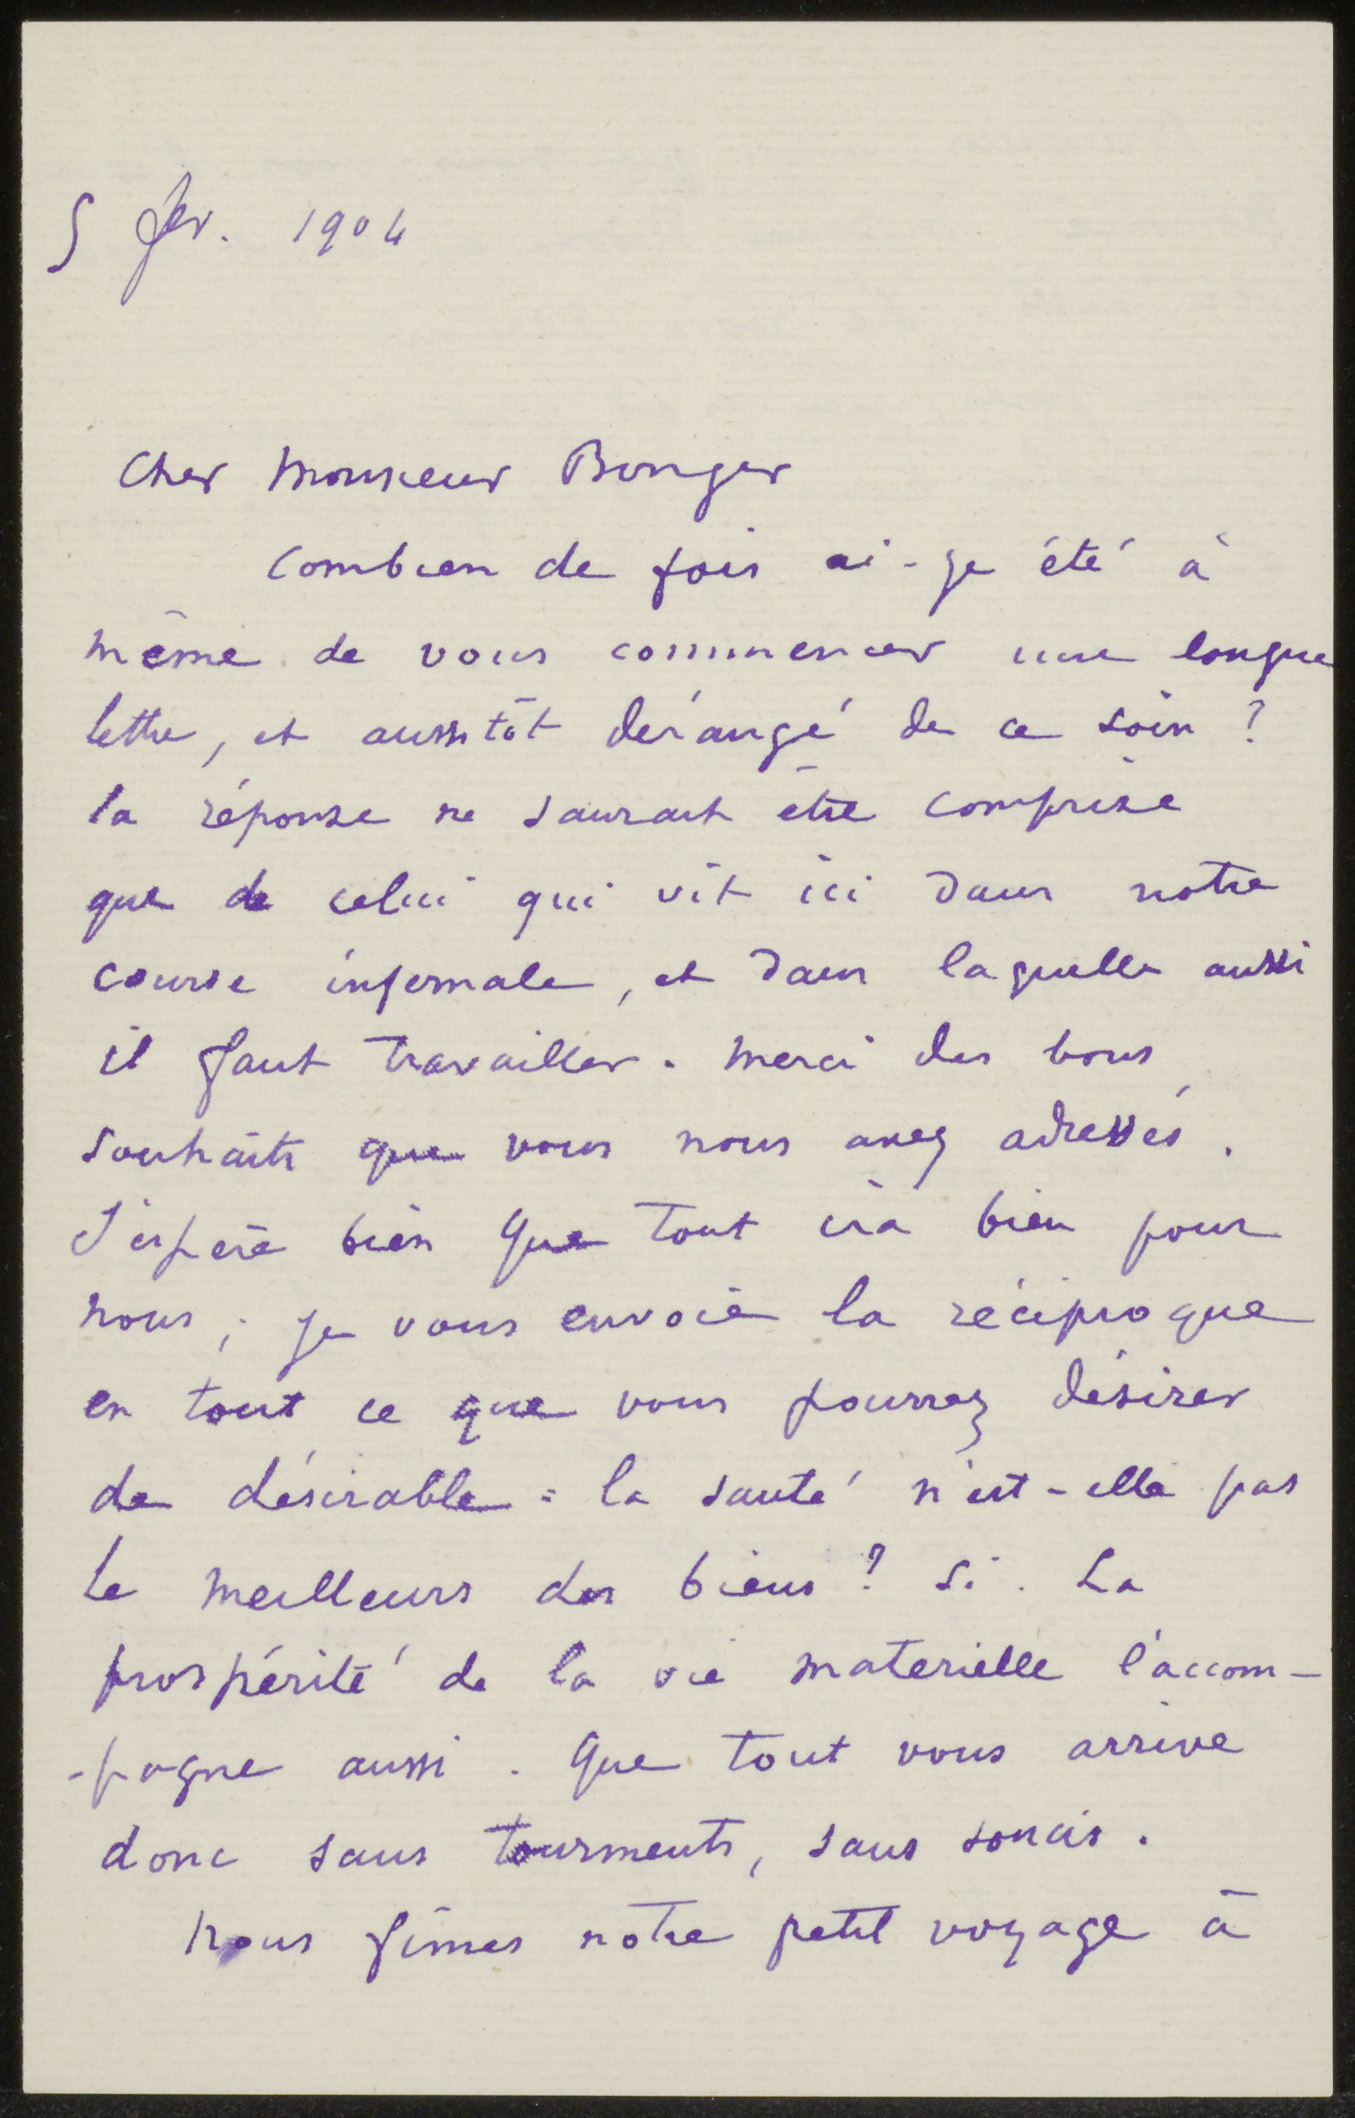 5 fev. 1904
Cher Monsieur Bonger
Combien de fois ai-je été à
même de vous commencer une longue
lettre, et aussitôt dérangé de ce soin ?
la réponse ne saurait être comprise
que de celui qui vit ici dans notre
course infernale, et dans laquelle aussi
il faut travailler. Merci des bons
souhaits que vous nous avez adressés.
J'espère bien que tout ira bien pour
nous ; je vous envoie la réciproque
en tout ce que vous pourrez désirer
de désirable : la santé n'est-elle pas
le meilleurs des biens ? Si. La
prospérité de la vie materielle l'accom-
-pagne aussi. Que tout vous arrive
donc sans tourments, sans soucis.
Nous fîmes notre petit voyage à